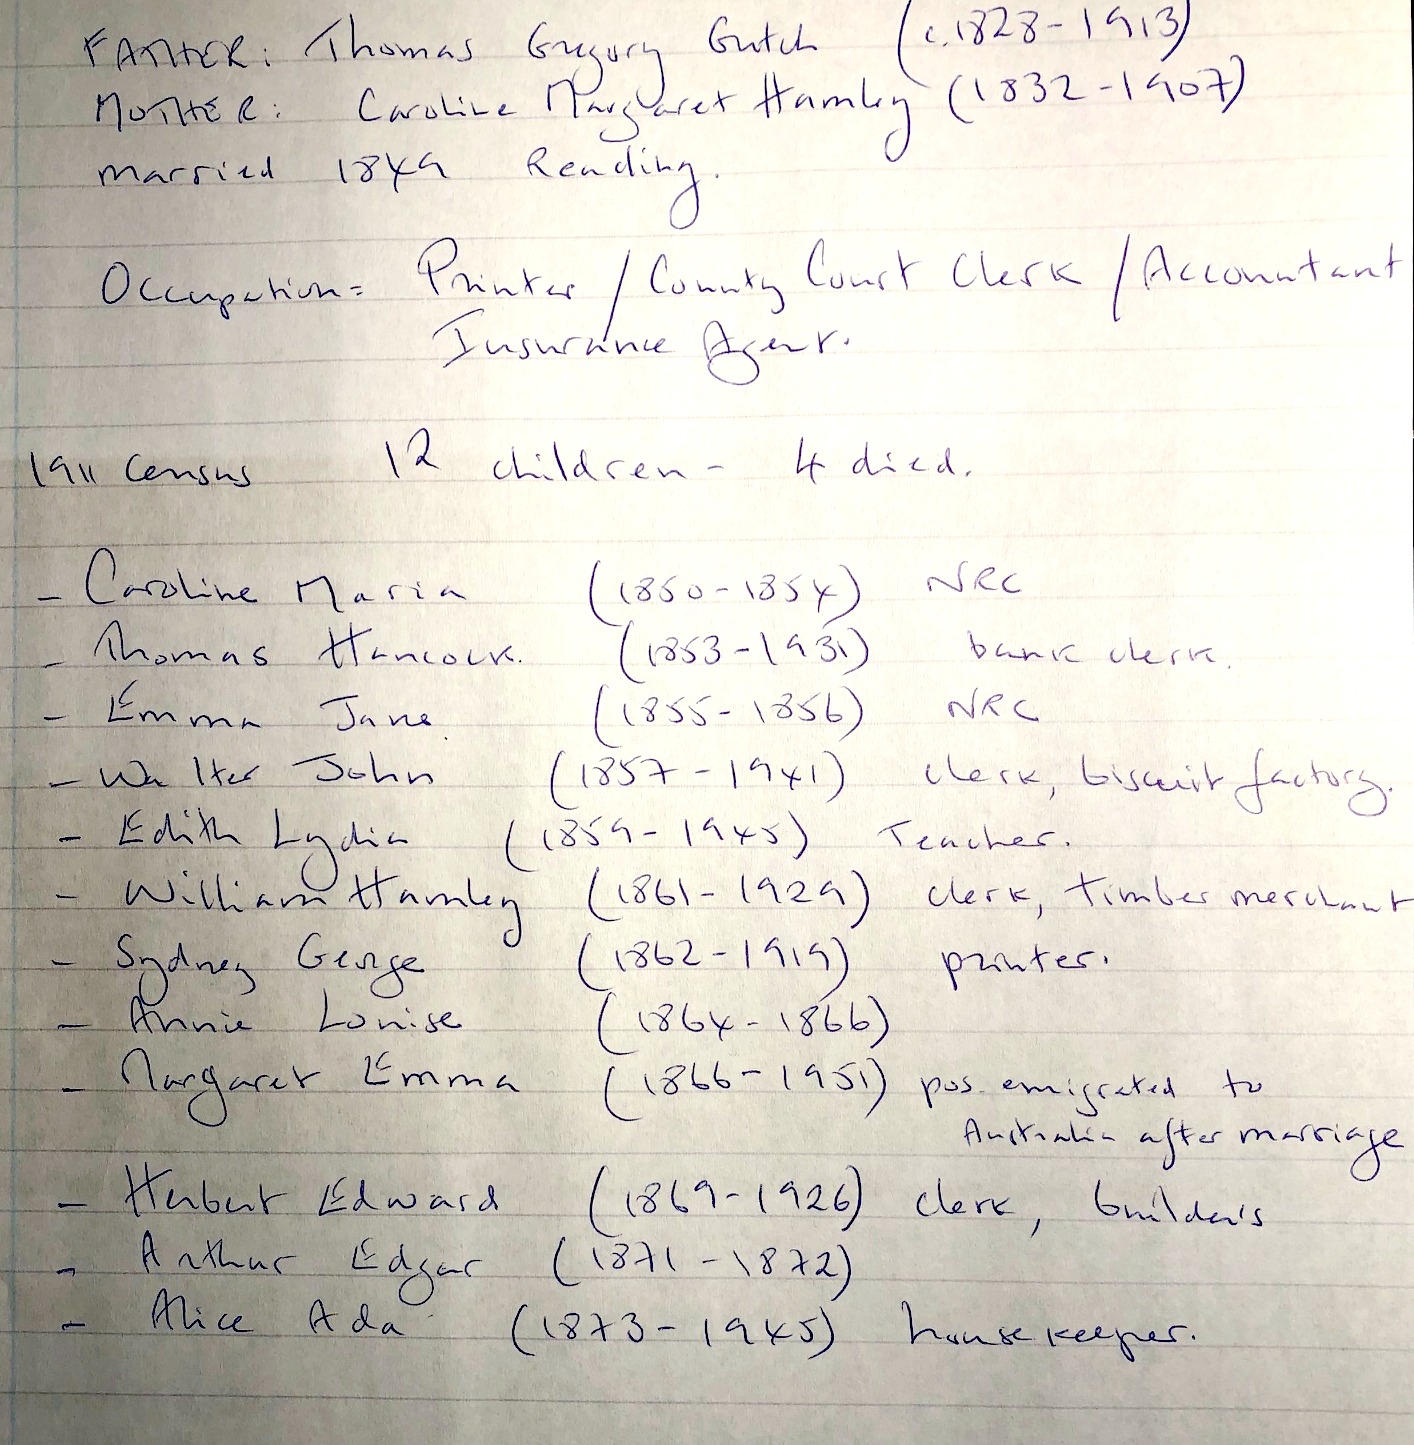 FATHER: Thomas Gregory Gutch (c.1828-1913)
MOTHER: Caroline Margaret Hamley (1832-1907)
married 1849 Reading.
Occupation = Printer / County Court Clerk / Accountant
Insurance Agent.
1911 Census 12 children - 4 died.
- Caroline Maria (1850-1854) NRC
- Thomas Hancock. (1853-1931) bank clerk.
- Emma Jane. (1855-1856) NRC
- Walter John (1857-1941) clerk, biscuit factory.
- Edith Lydia (1859-1945) Teacher.
- William Hamley (1861-1929) clerk, timber merchant
- Sydney George (1862-1919) printer.
- Annie Louise (1864-1866)
- Margaret Emma (1866-1951) pos. emigrated to
Australia after marriage
- Herbert Edward (1869-1926) clerk, builder's
- Arthur Edgar (1871-1872)
- Alice Ada (1873-1945) housekeeper.